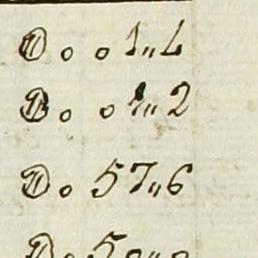 Do o 1„2
Do o 1„2
Do 57„6
Do 5 0„0